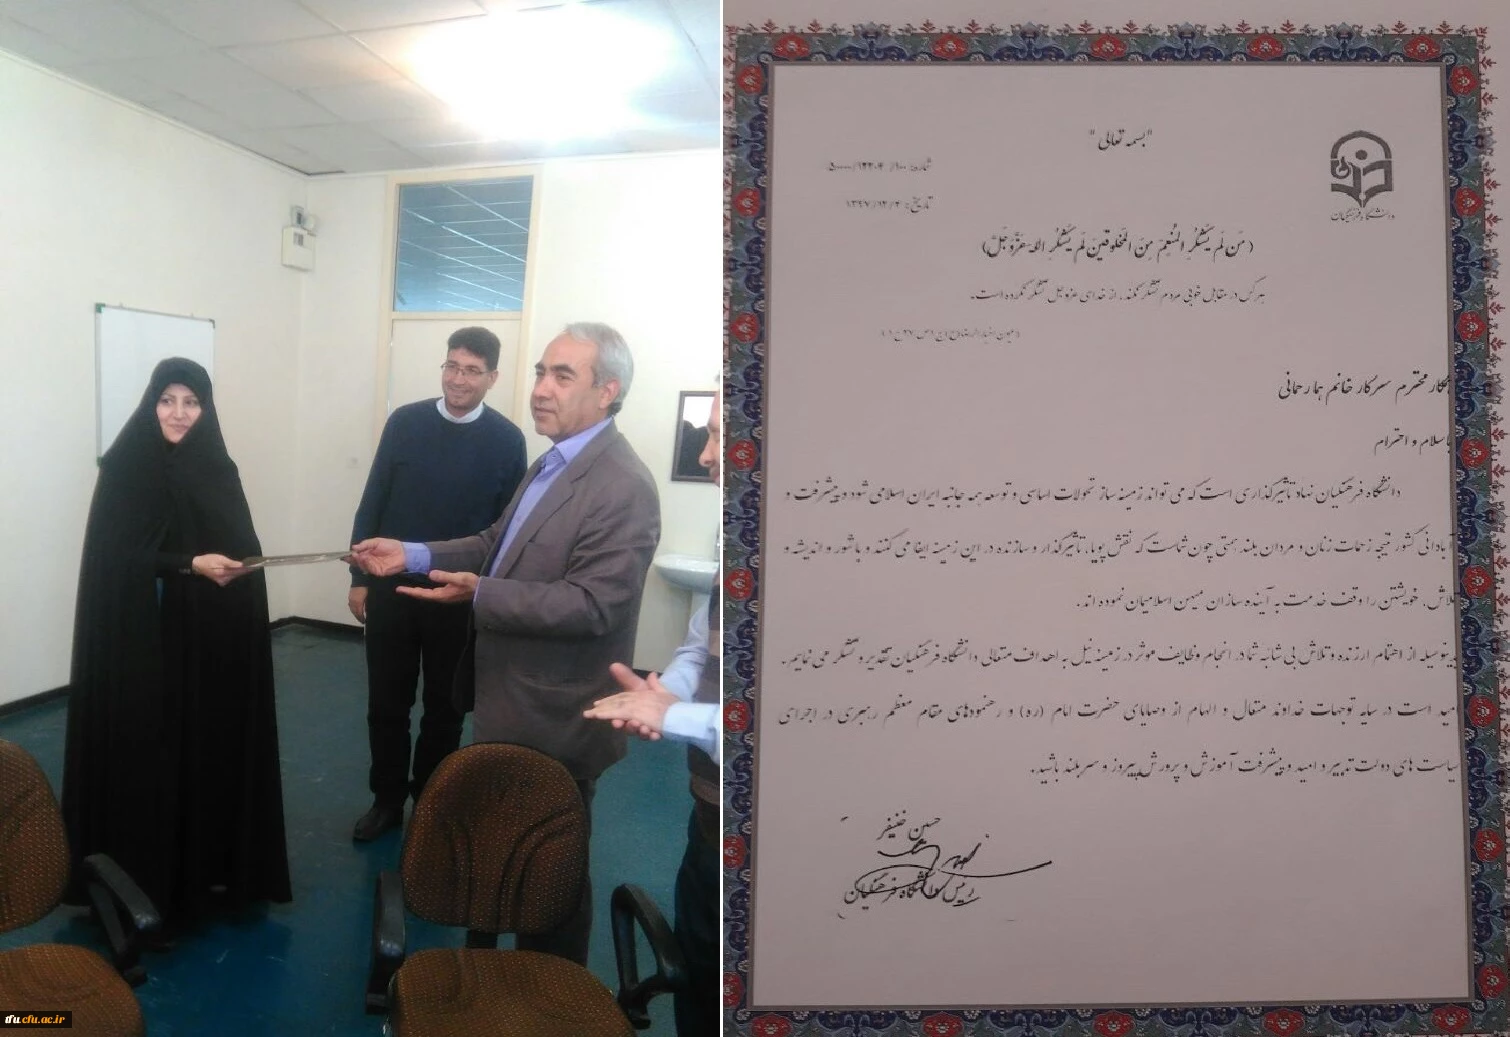 "بسمه تعالی"
شماره: ۵۰۰۰۰/۱۲۲۰۴/۱۰۰
تاریخ: ۱۳۹۷/۱۲/۴
دانشگاه فرهنگیان
(مَن لَم یَشکُرِ المُنعِمَ مِنَ المَخلوقینَ لَم یَشکُرِ اللهَ عَزَّوَجَلَّ)
هرکس در مقابل خوبی مردم تشکر نکند، از خدای عزوجل تشکر نکرده است.
همکار محترم سرکار خانم هما رحمانی
باسلام و احترام
دانشگاه فرهنگیان نهاد تاثیرگذاری است که می تواند زمینه ساز تحولات اساسی و توسعه همه جانبه ایران اسلامی شود و پیشرفت و
آبادانی کشور نتیجه زحمات زنان و مردان بلند همتی چون شماست که نقش پویا، تاثیرگذار و سازنده در این زمینه ایفا می کنند و باشور و اندیشه و
تلاش، خویشتن را وقف خدمت به آینده سازان میهن اسلامیمان نموده اند.
بدینوسیله از اهتمام ارزنده و تلاش بی شائبه شما در انجام وظایف موثر در زمینه نیل به اهداف متعالی دانشگاه فرهنگیان تقدیر و تشکر می نمایم.
امید است در سایه توجهات خداوند متعال و الهام از وصایای حضرت امام (ره) و رهنمودهای مقام معظم رهبری در اجرای
سیاست های دولت تدبیر و امید و پیشرفت آموزش و پرورش پیروز و سربلند باشید.
حسین خنیفر
رئیس دانشگاه فرهنگیان
tfu.cfu.ac.ir